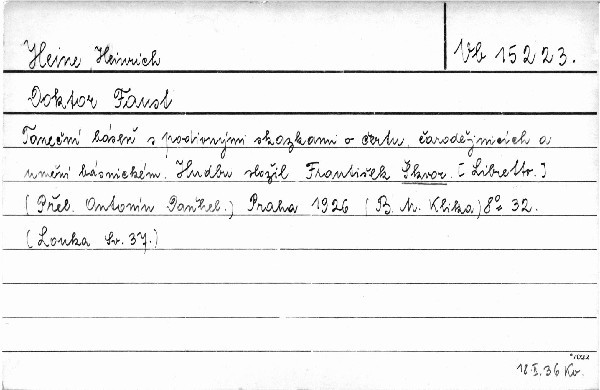 Heine, Heinrich
Vb 15223.
Doktor Faust
Taneční báseň s podivnými skazkami o čertu, čarodějnicích a
umění básnickém. Hudbu složil František Škvor. [Libretto.]
(Přel. Antonín Daňhel.) Praha 1926 (B. M. Klika) 8° 32.
(Louka Sv. 37.)
18 I. 36 Kv.